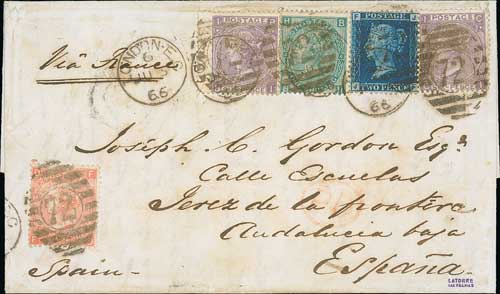 LONDON-E
6
JU
66
Via France
H B
F J
TWO PENCE
72
66
Joseph C. Gordon Esqe
Calle Escuelas
Jerez de la frontera
Andalucia baja
España
72
Spain
LATORRE